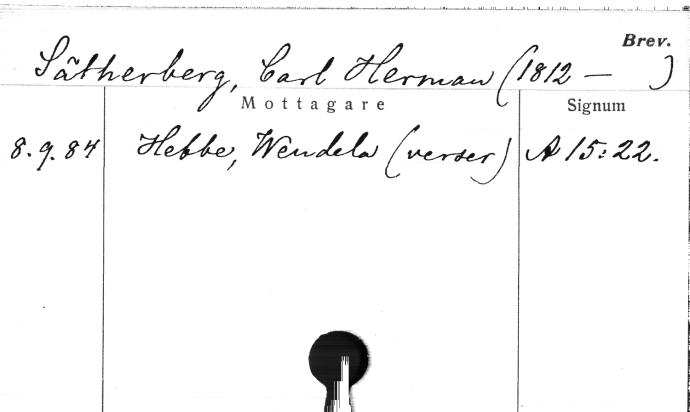 Brev.
Sätherberg, Carl Herman (1812 — )
Mottagare
Signum
8.9.84 Hebbe, Wendela (verser) A 15:22.